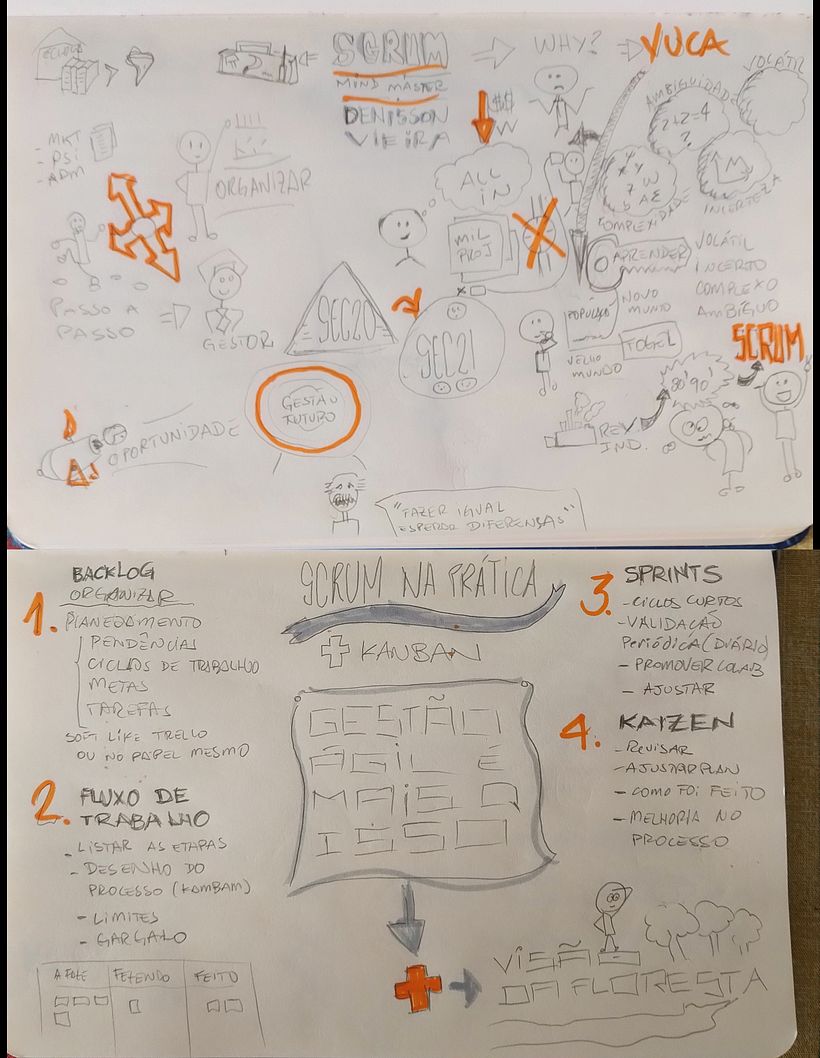 SCRUM
MIND MASTER
DENISSON
VIEIRA
WHY?
VUCA
- MKT
- PSI
- ADM
ORGANIZAR
PASSO A
PASSO
GESTOR
OPORTUNIDADE
SEC20
SEC21
GESTÃO
FUTURO
"FAZER IGUAL
ESPERAR DIFERENSAS"
$$$
ALL
IN
MIL
PROJ
AMBIGUIDADE
2+2=4
?
VOLÁTIL
COMPLEXIDADE
INCERTEZA
APRENDER
VOLÁTIL
INCERTO
COMPLEXO
AMBÍGUO
NOVO
MUNDO
VELHO
MUNDO
SCRUM
80' 90'
REV.
IND.
SCRUM NA PRÁTICA
+ KANBAN
GESTÃO
ÁGIL É
MAIS Q
ISSO
1. BACKLOG
ORGANIZAR
PLANEJAMENTO
PENDÊNCIAS
CICLOS DE TRABALHO
METAS
TAREFAS
SOFT LIKE TRELLO
OU NO PAPEL MESMO
2. FLUXO DE
TRABALHO
- LISTAR AS ETAPAS
- DESENHO DO
PROCESSO (KAMBAM)
- LIMITES
- GARGALO
FEITO
3. SPRINTS
- CICLOS CURTOS
- VALIDAÇÃO
PERIÓDICA (DIÁRIO)
- PROMOVER COLAB
- AJUSTAR
4. KAIZEN
- REVISAR
- AJUSTAR PLAN
- COMO FOI FEITO
- MELHORIA NO
PROCESSO
VISÃO
DA FLORESTA